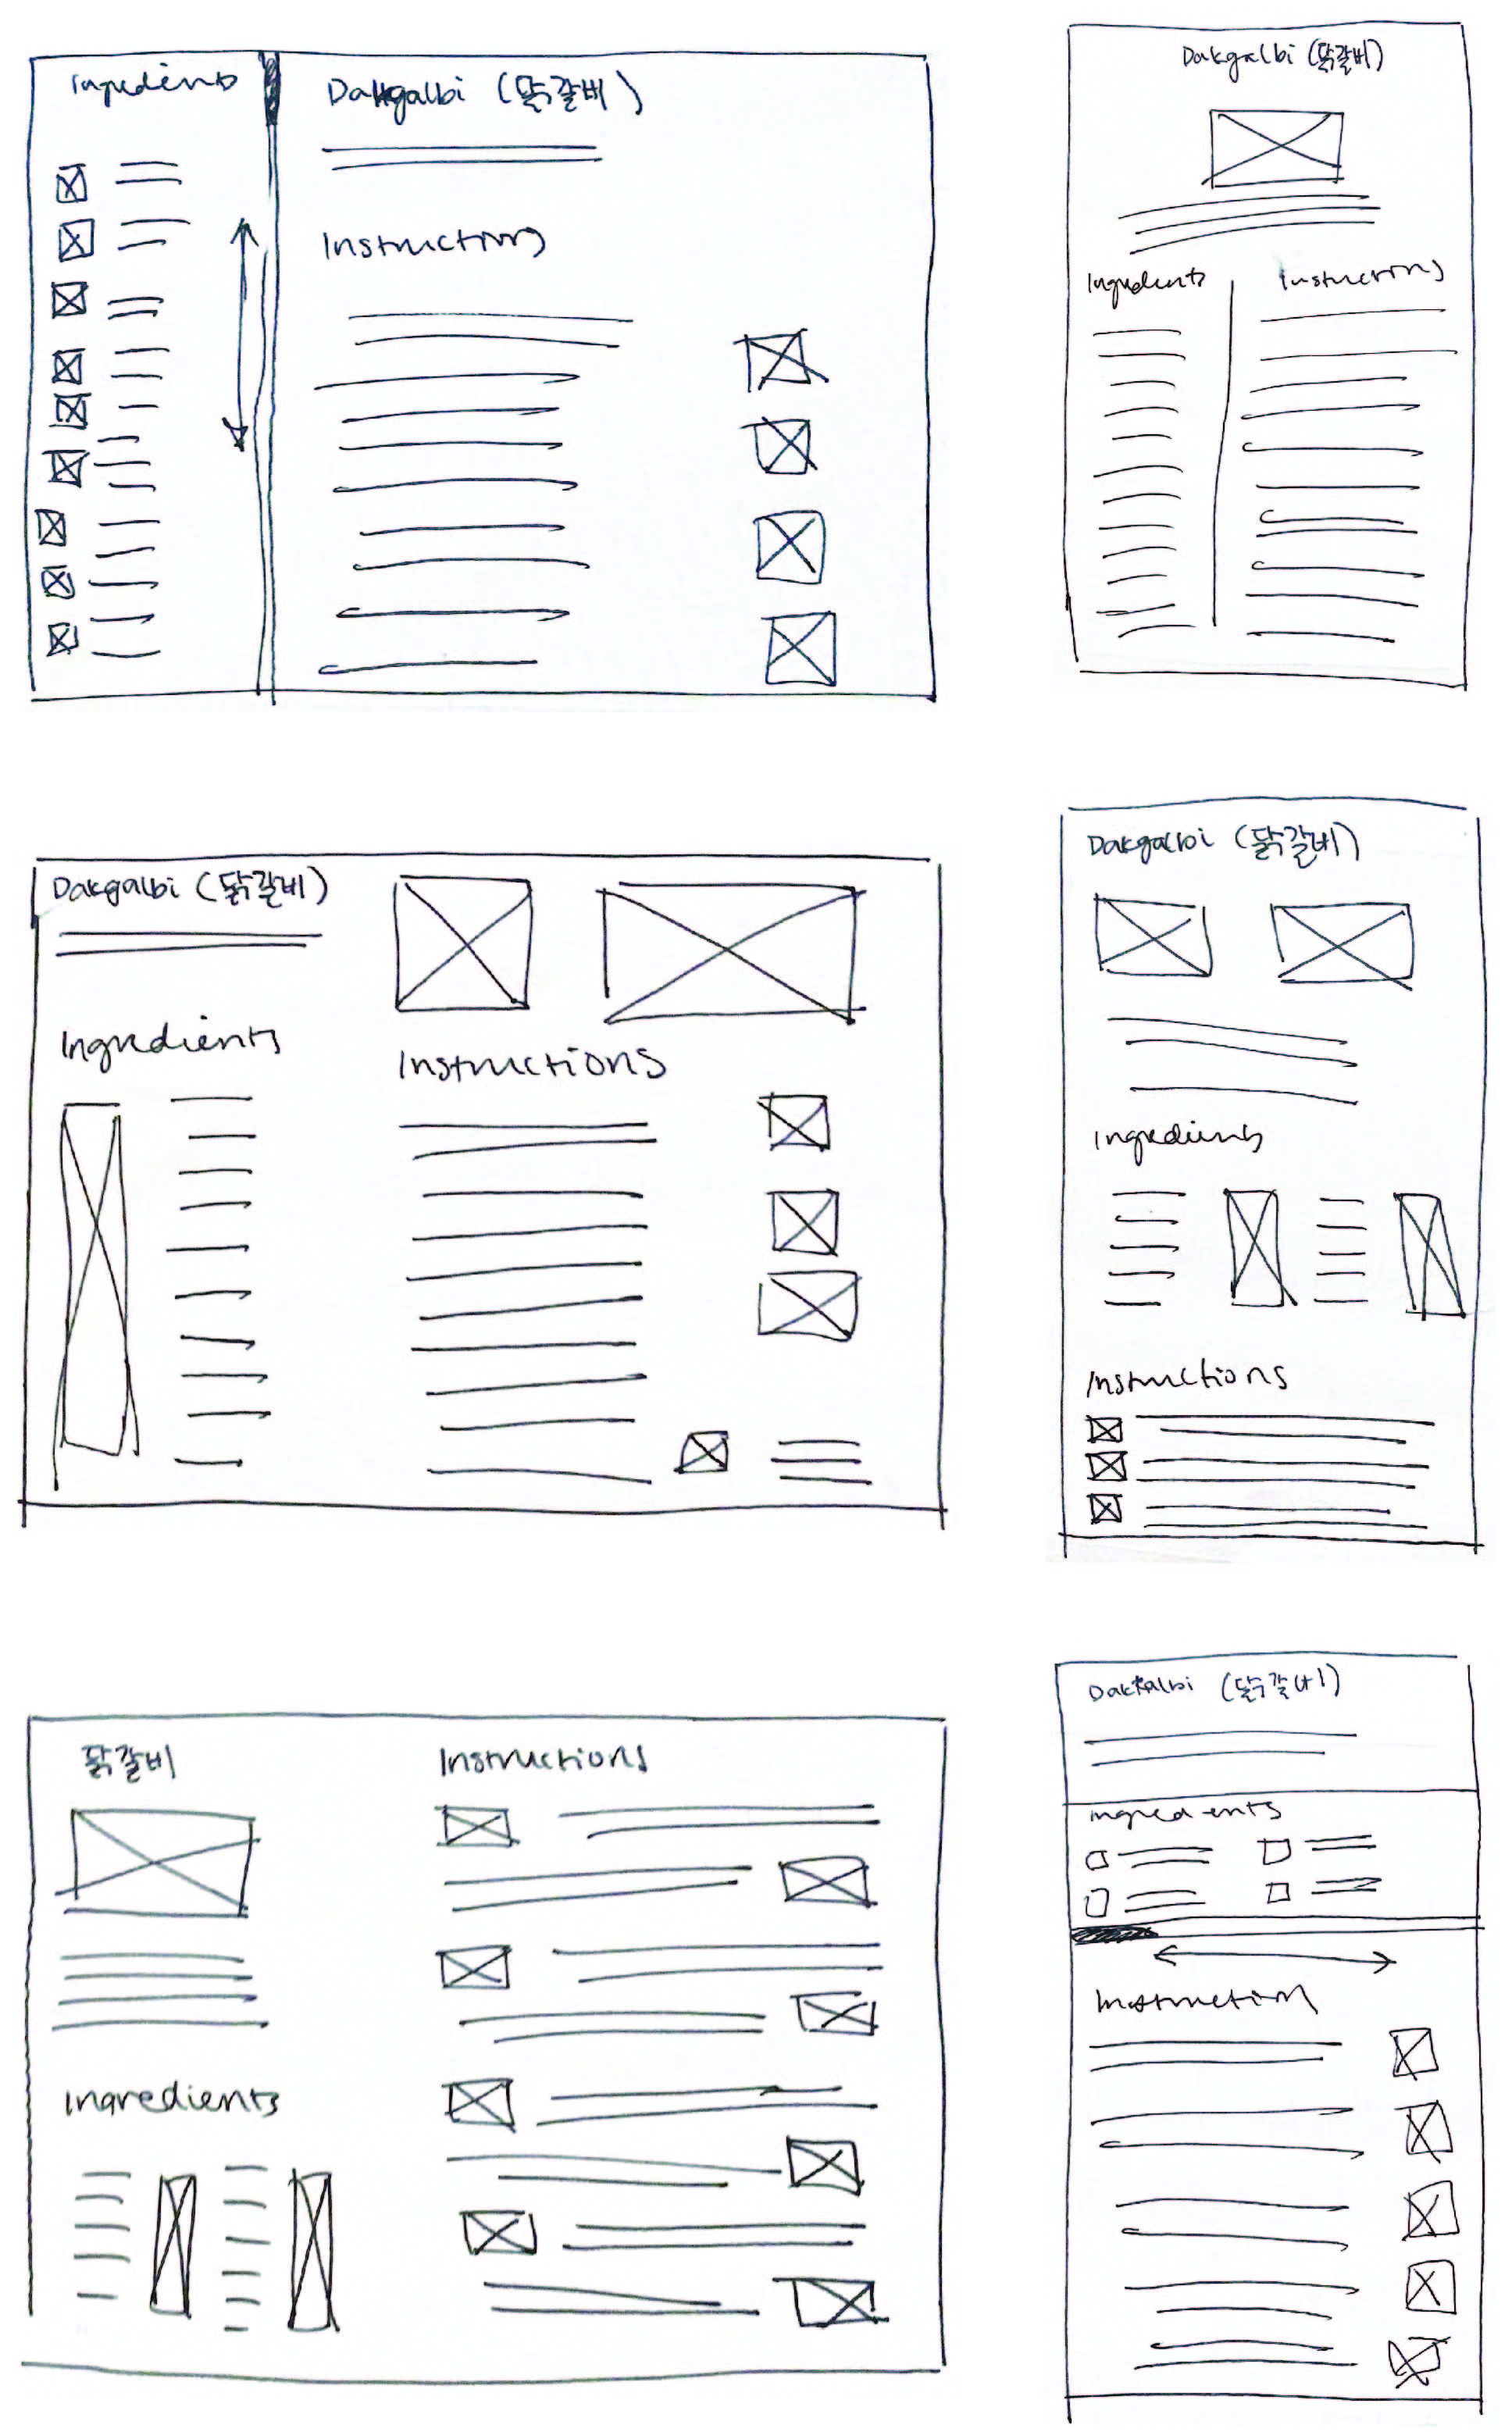 Ingredients
Dakgalbi (닭갈비)
Instructions
Dakgalbi (닭갈비)
Ingredients
Instructions
Dakgalbi (닭갈비)
Ingredients
Instructions
Dakgalbi (닭갈비)
Ingredients
Instructions
닭갈비
Instructions
Ingredients
Dakgalbi (닭갈비)
Ingredients
Instruction